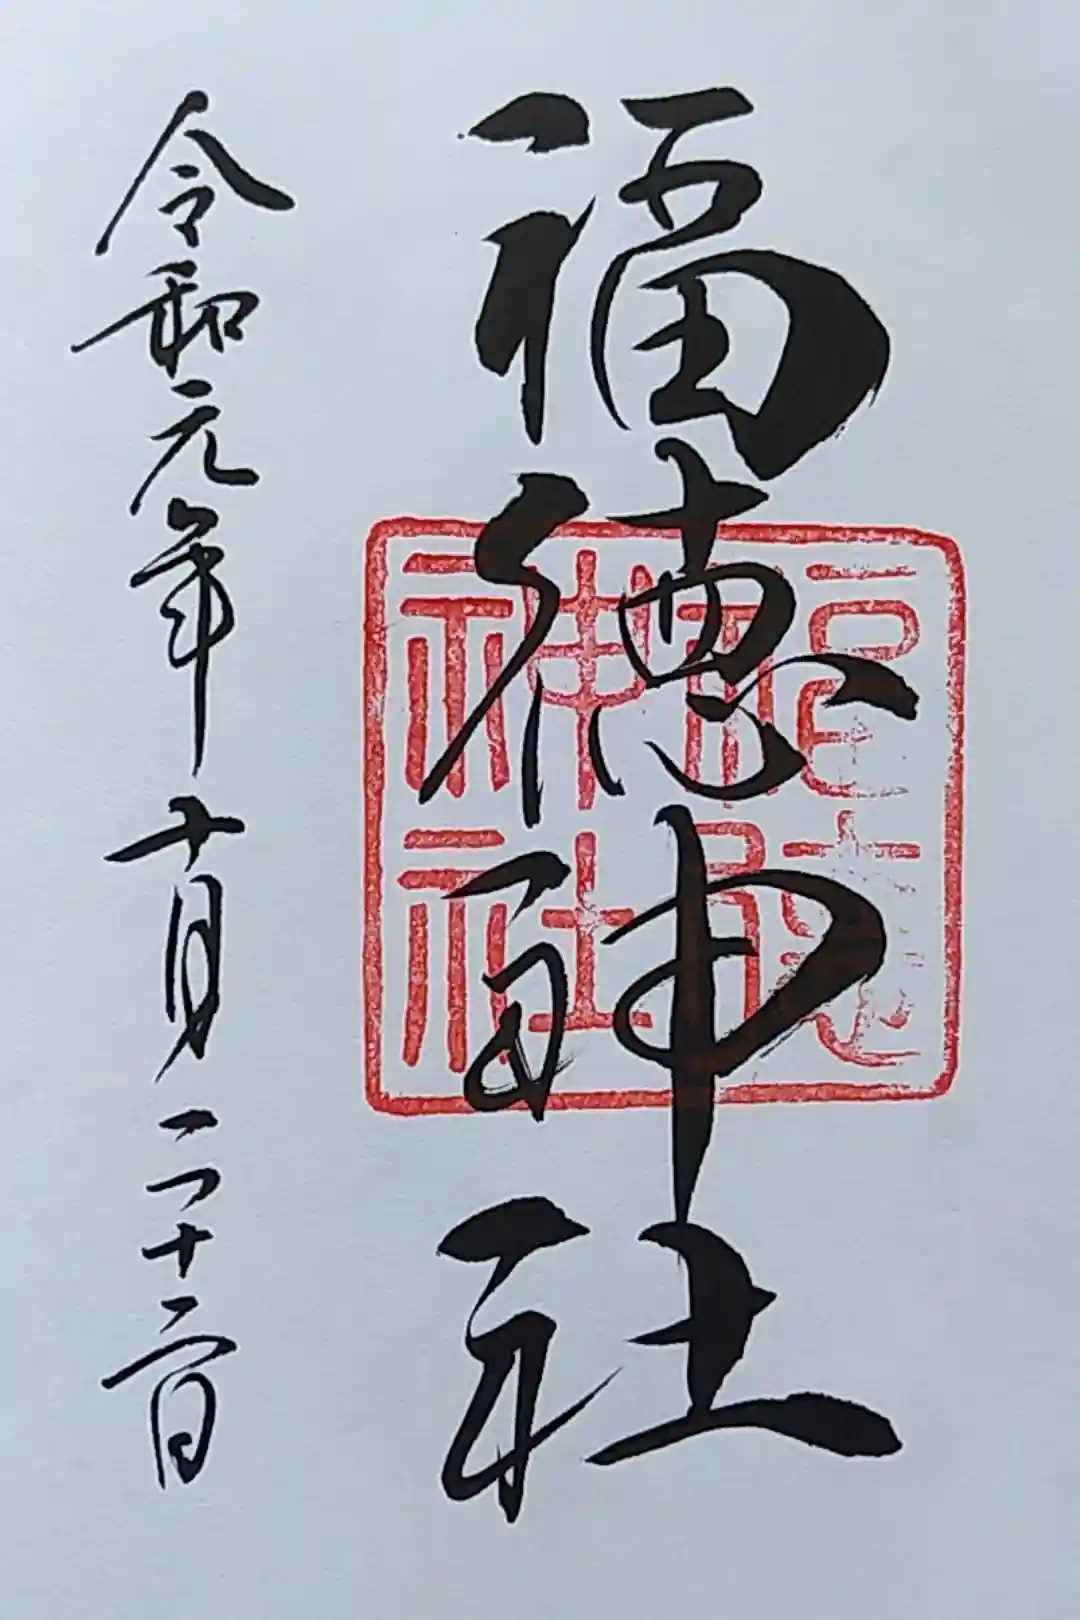 福徳神社
神社
令和元年十月二十二日